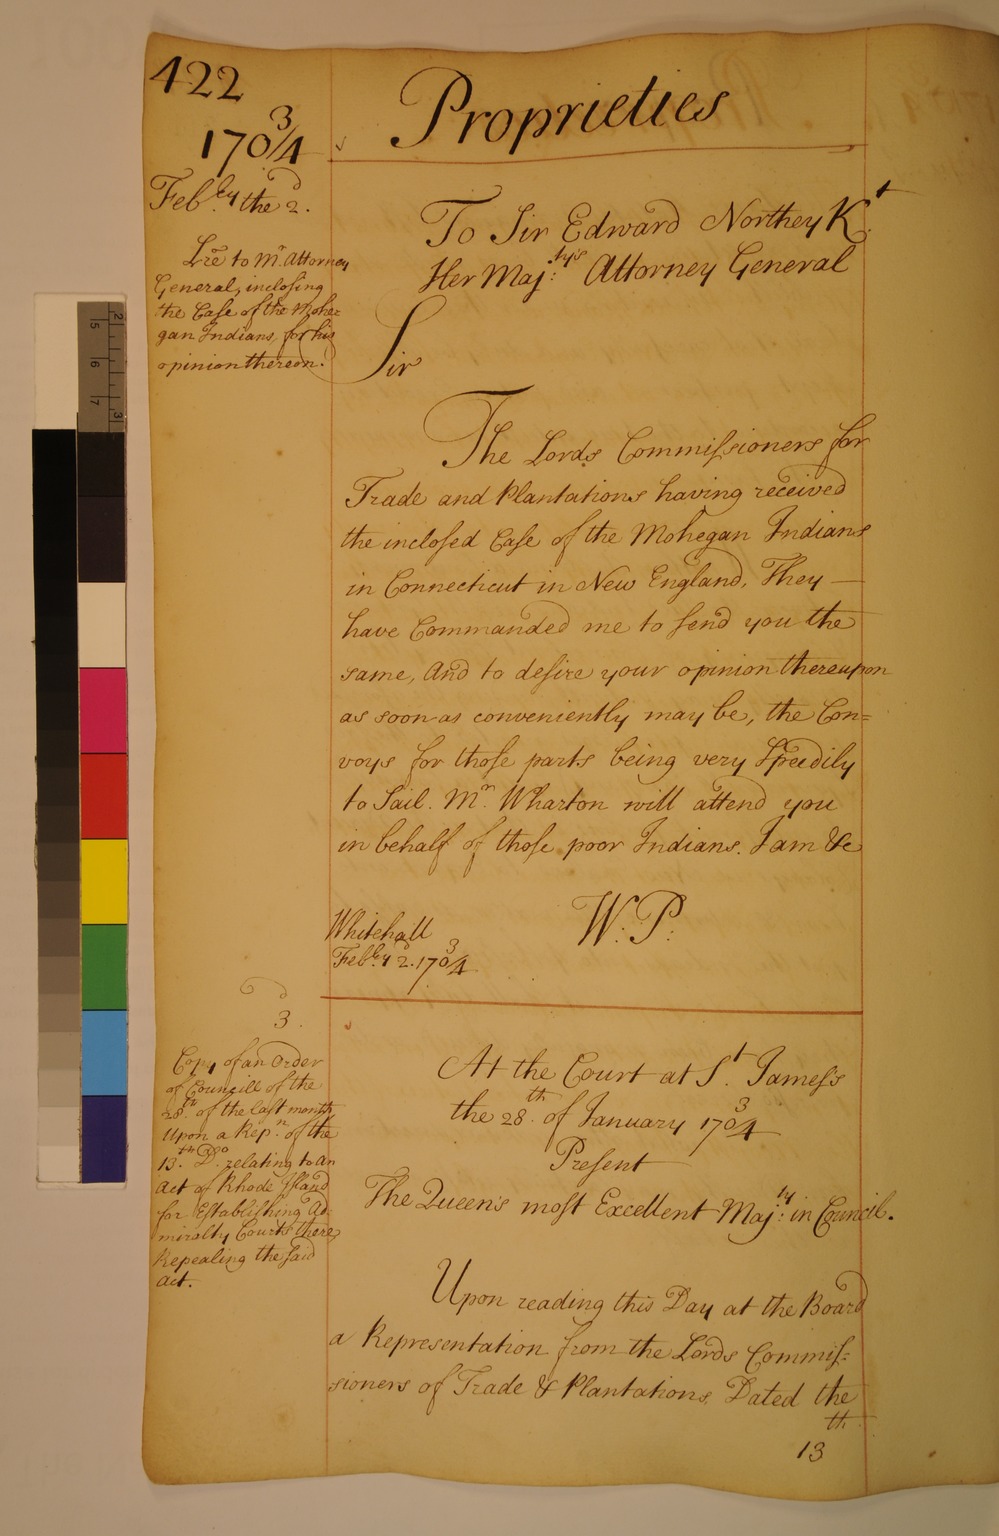 422
Proprieties
170¾
Feb:ry the 2d.
Lre to Mr. Attorney
General, inclosing
the Case of the Mohe=
gan Indians, for his
opinion thereon.
To Sir Edward Northey Kt.
Her Maj:tys Attorney General
Sir
The Lords Commissioners for
Trade and Plantations having received
the inclosed Case of the Mohegan Indians
in Connecticut in New England, They —
have Commanded me to send you the
same, And to desire your opinion thereupon
as soon as conveniently may be, the Con=
voys for those parts being very Speedily
to Sail. Mr. Wharton will attend you
in behalf of those poor Indians. I am &c
W: P:
Whitehall
Feb:ry 2d. 170¾
3d.
Copy of an Order
of Councill of the
28th. of the last month
Upon a Rep:n of the
13th. Do. relating to an
Act of Rhode Island
for Establishing Ad=
miralty Courts there
Repealing the said
Act.
At the Court at St. James's
the 28th. of January 170¾
Present
The Queen's most Excellent Maj:ty in Council.
Upon reading this Day at the Board
a Representation from the Lords Commis:
sioners of Trade & Plantations, Dated the
13th